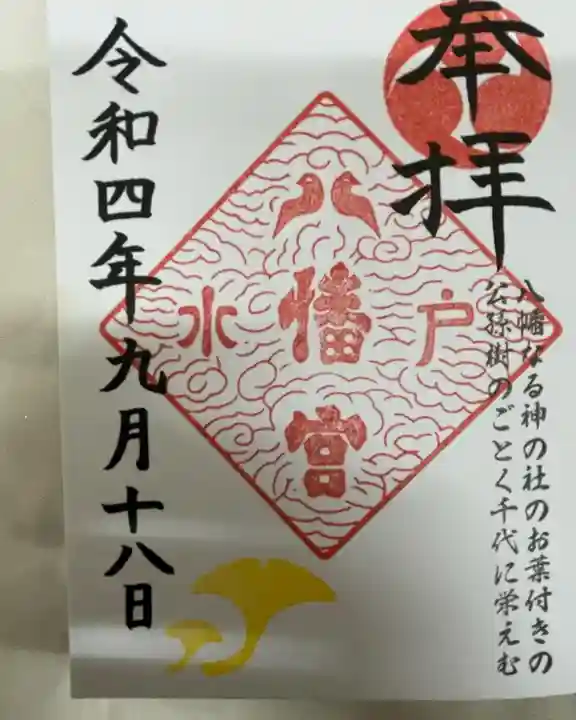 奉拝
八幡なる神の社のお葉付きの
公孫樹のごとく千代に栄えむ
水戸
八幡宮
令和四年九月十八日